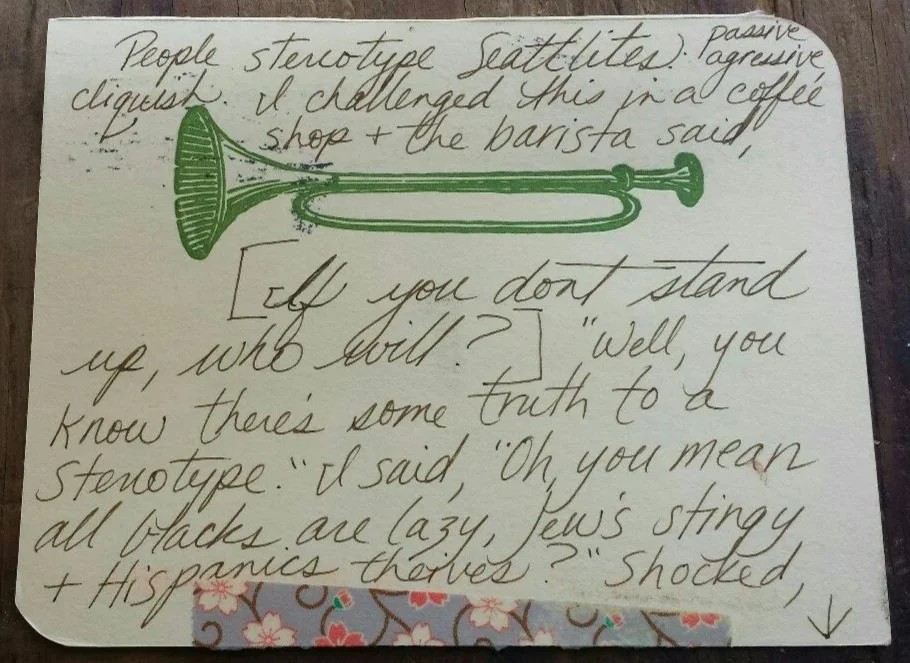 People stereotype Seattlites: passive
agressive
cliquish. I challenged this in a coffee
shop + the barista said,
[If you don't stand
up, who will?] "Well, you
know there's some truth to a
sterotype." I said, "Oh, you mean
all blacks are lazy, Jew's stingy
+ Hispanics theives?" Shocked,